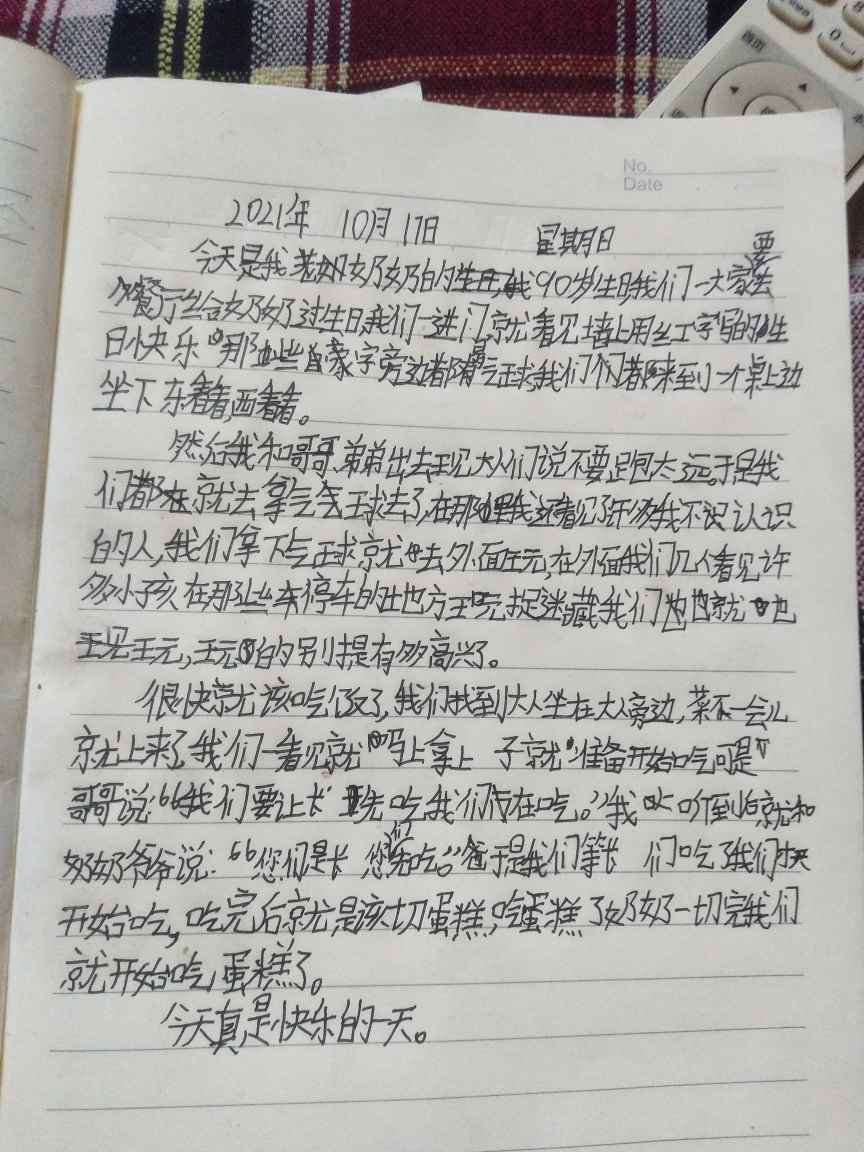 No.
Date
2021年 10月17日 星期日
要
今天是我老奶奶的90岁生日,我们一大家去
餐厅给奶奶过生日,我们一进门,就看见墙上用红字写的生
日快乐。那些字旁边都有气球,我们都来到一个桌上边
坐下东看看,西看看。
然后我和哥哥弟弟出去玩大人们说不要跑太远。于是我
们都就去拿气球去了,在那里我还看见了许多我不认识
的人,我们拿下气球就去外面玩,在外面我们几人看见许
多小子孩在那些停车的地方玩捉迷藏我们也就也
玩,玩的别提有多高兴了。
很快就该吃饭了,我们找到大人坐在大人旁边,菜不一会儿
就上来了,我们一看见就马上拿上 子就准备开始吃可是
哥哥说:“我们要让长 先吃我们在吃。”我听到后就和
奶奶爷爷说:“您们是长 您们先吃。”于是我们等长 们吃了我们才
开始吃,吃完后就是该切蛋糕,吃蛋糕了奶奶一切完我们
就开始吃蛋糕了。
今天真是快乐的一天。
返回